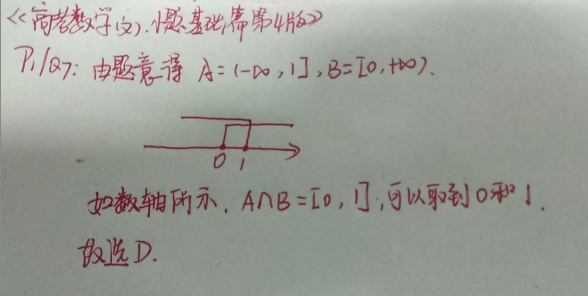 《高考数学(文)·小题基础篇第4版》
P1/Q7: 由题意得 A=(-∞,1],B=[0,+∞).
0 1
如数轴所示,A∩B=[0,1],可以取到0和1.
故选D.